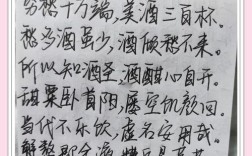 穷愁千万端,美酒三百杯.
愁多酒虽少,酒倾愁不来.
所以知酒圣,酒酣心自开.
辞粟卧首阳,屡空饥颜回.
当代不乐饮,虚名安用哉.